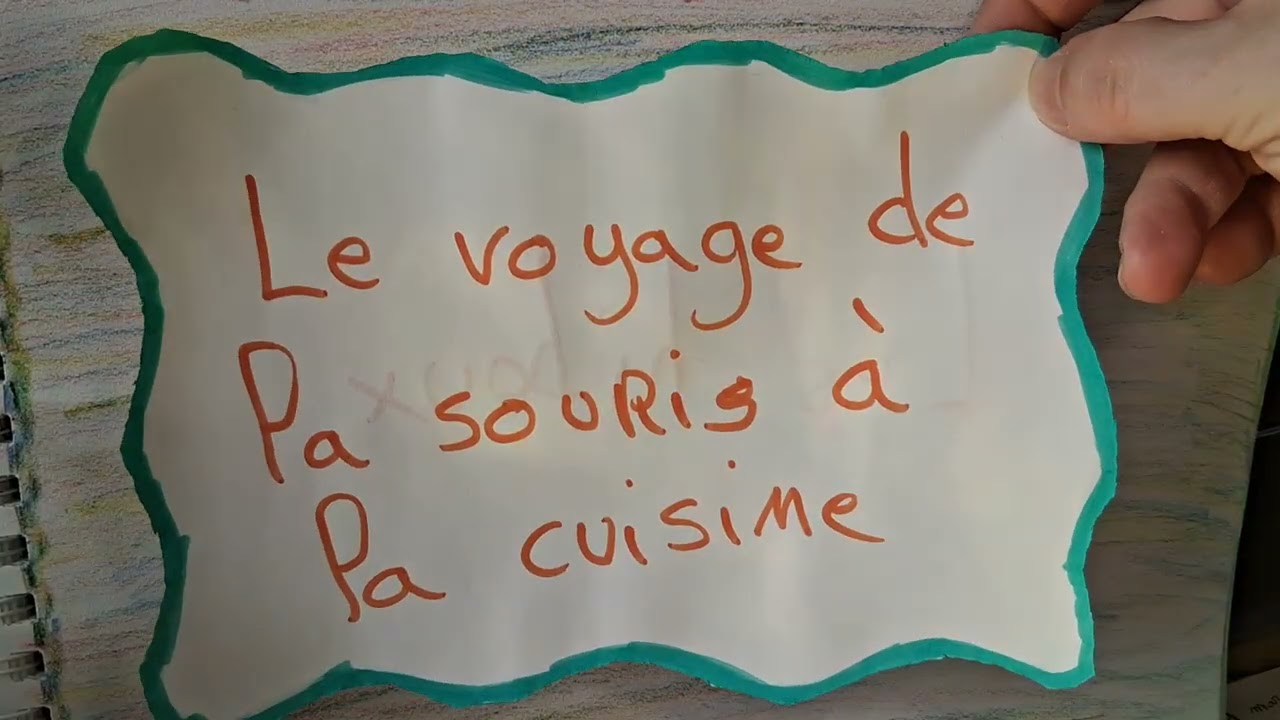 Le voyage de
Pa souris à
Pa cuisine